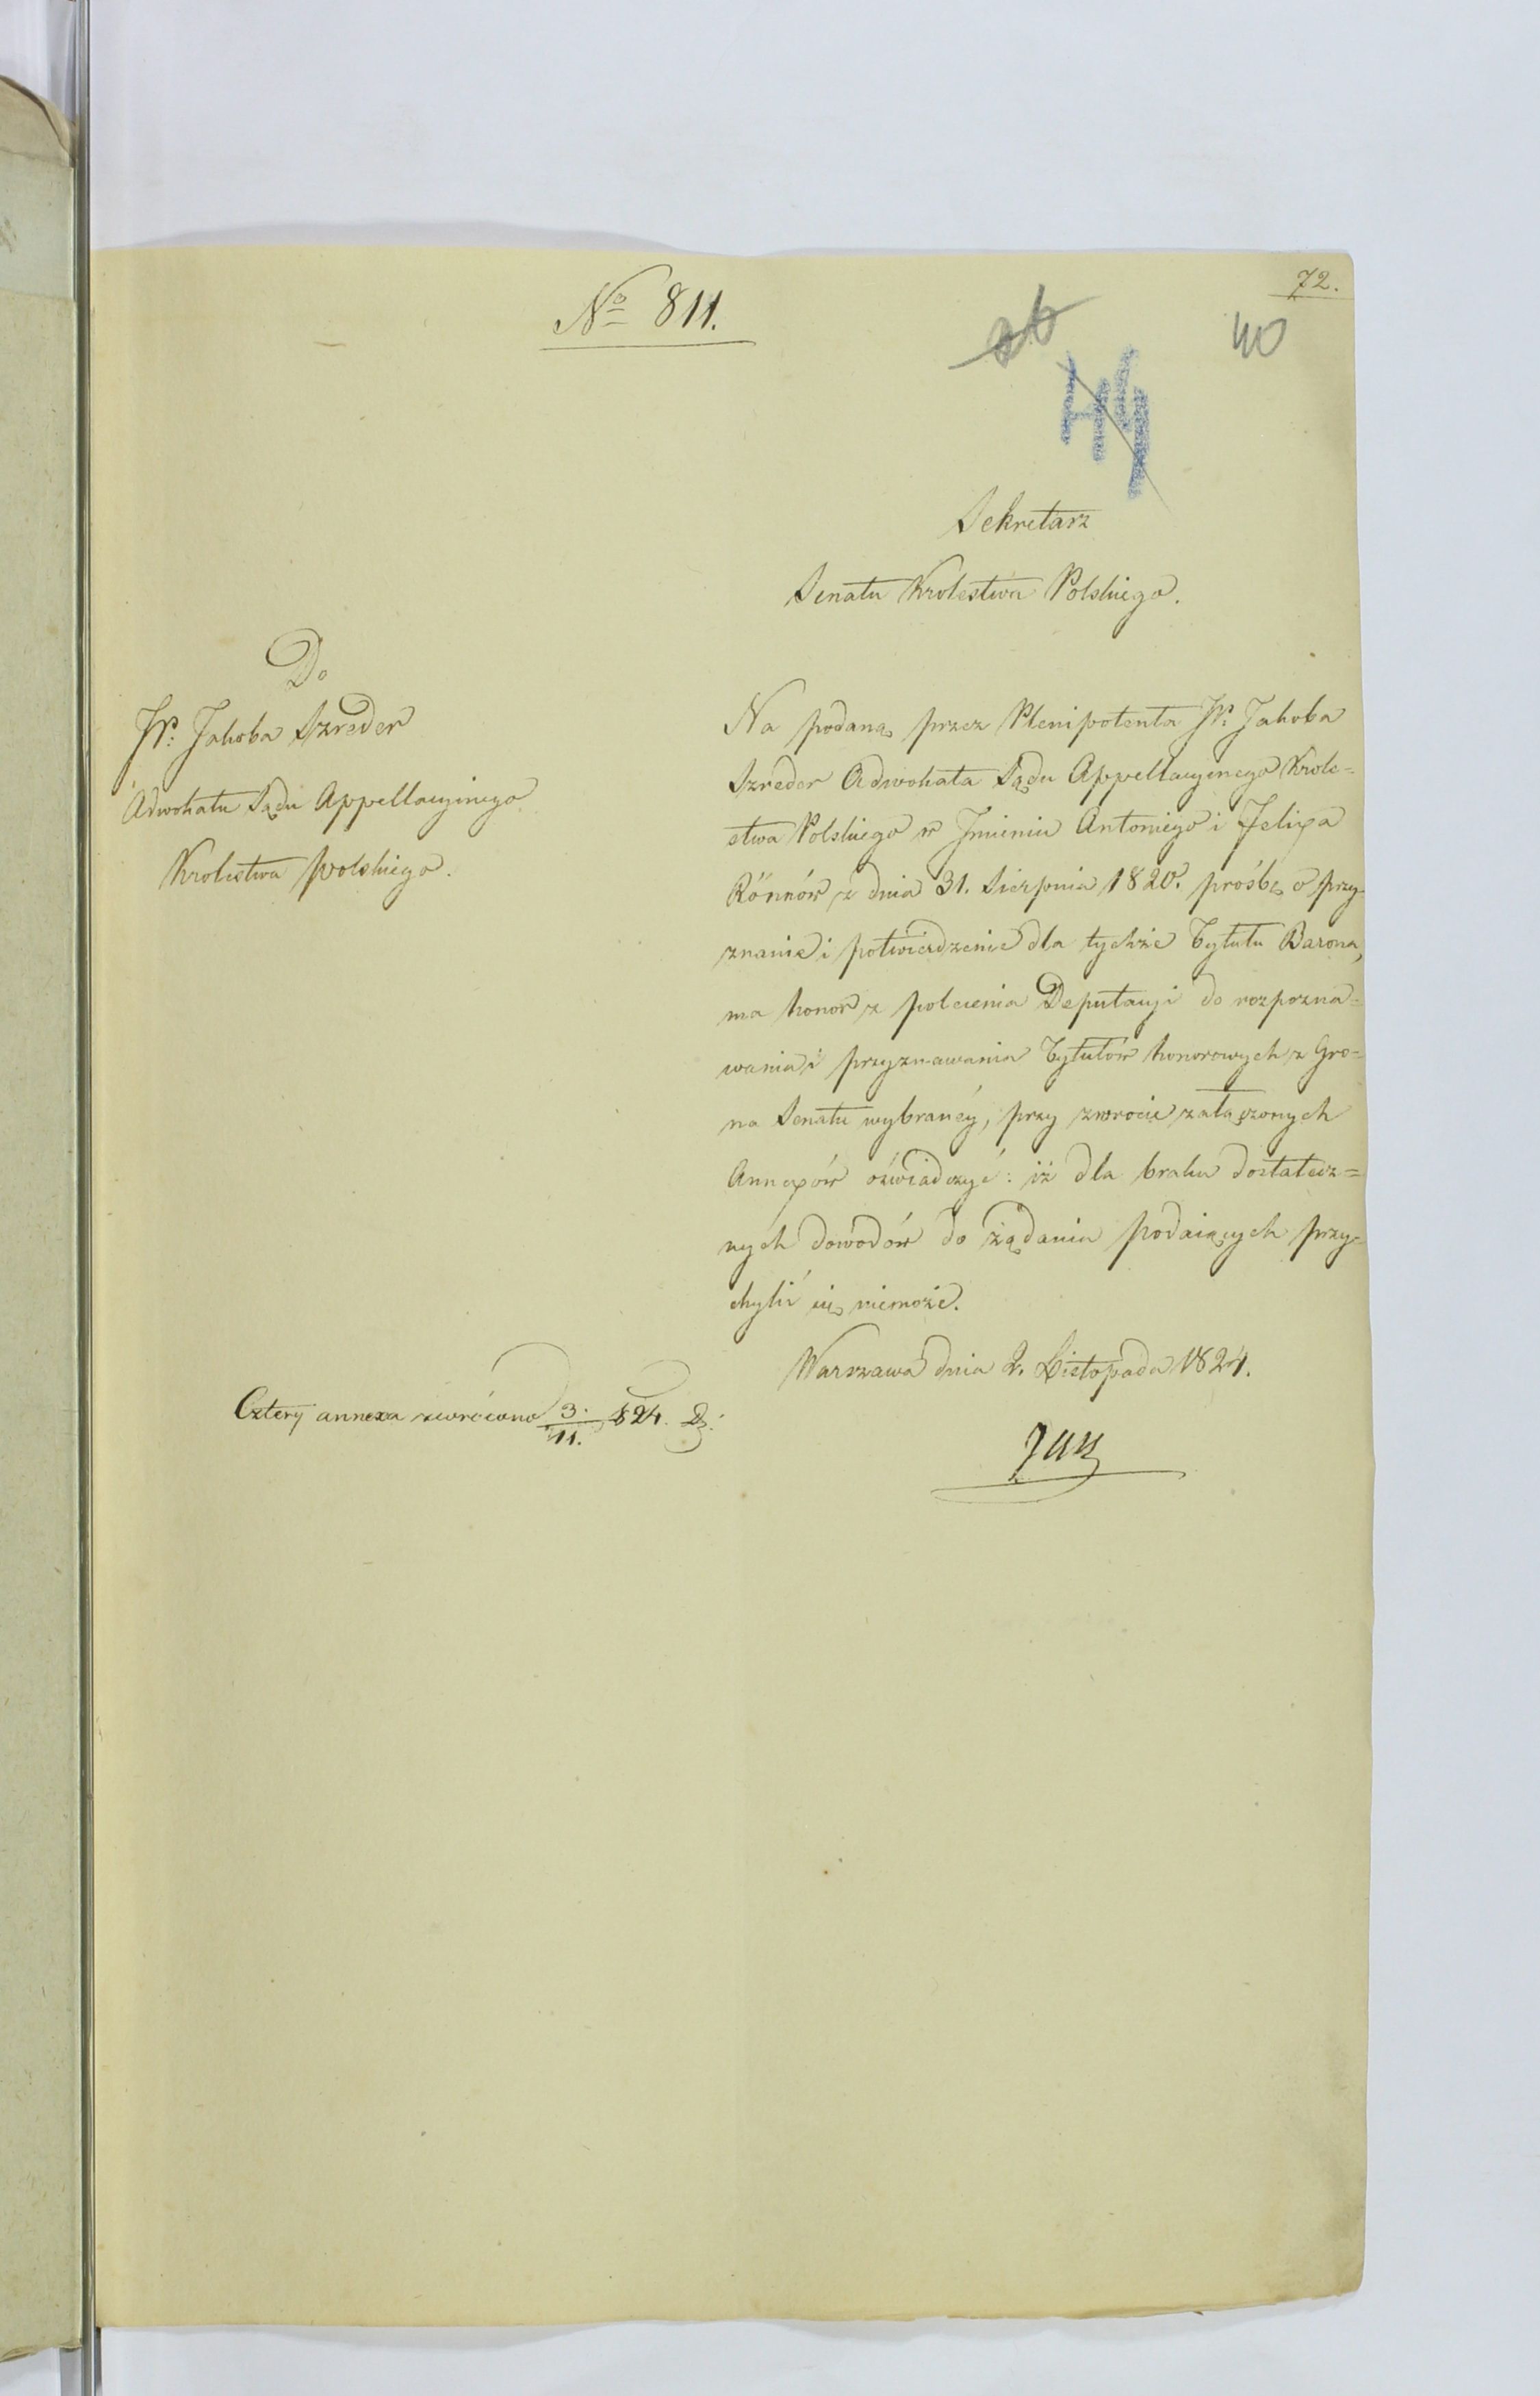 72.
No 811.
40
44
Sekretarz
Senatu Krolestwa Polskiego.
Do
W. Jakoba Szreder
Adwokatu Sądu Appellacyinego
Krolestwa polskiego.
Na podaną przez Plenipotenta W. Jakoba
Szreder Adwokata Sądu Appellacyinego Krole=
stwa Polskiego w Jmieniu Antoniego i Felixa
Rönnów z dnia 31. Sierpnia 1820. prośbę o przy-
znanie i potwierdzenie dla tychże Tytułu Barona,
ma honor z polecenia Deputacyi do rozpozna=
wania i przyznawania Tytułów honorowych z Gro=
na Senatu wybranéy, przy zwrocie załączonych
Annexów oświadczyć: iż dla braku dostatecz=
nych dowodów do żądania podaiących przy-
chylić się niemoże.
Warszawa dnia 2. Listopada 1824.
Cztery annexa zwrócono 3/11. 824.